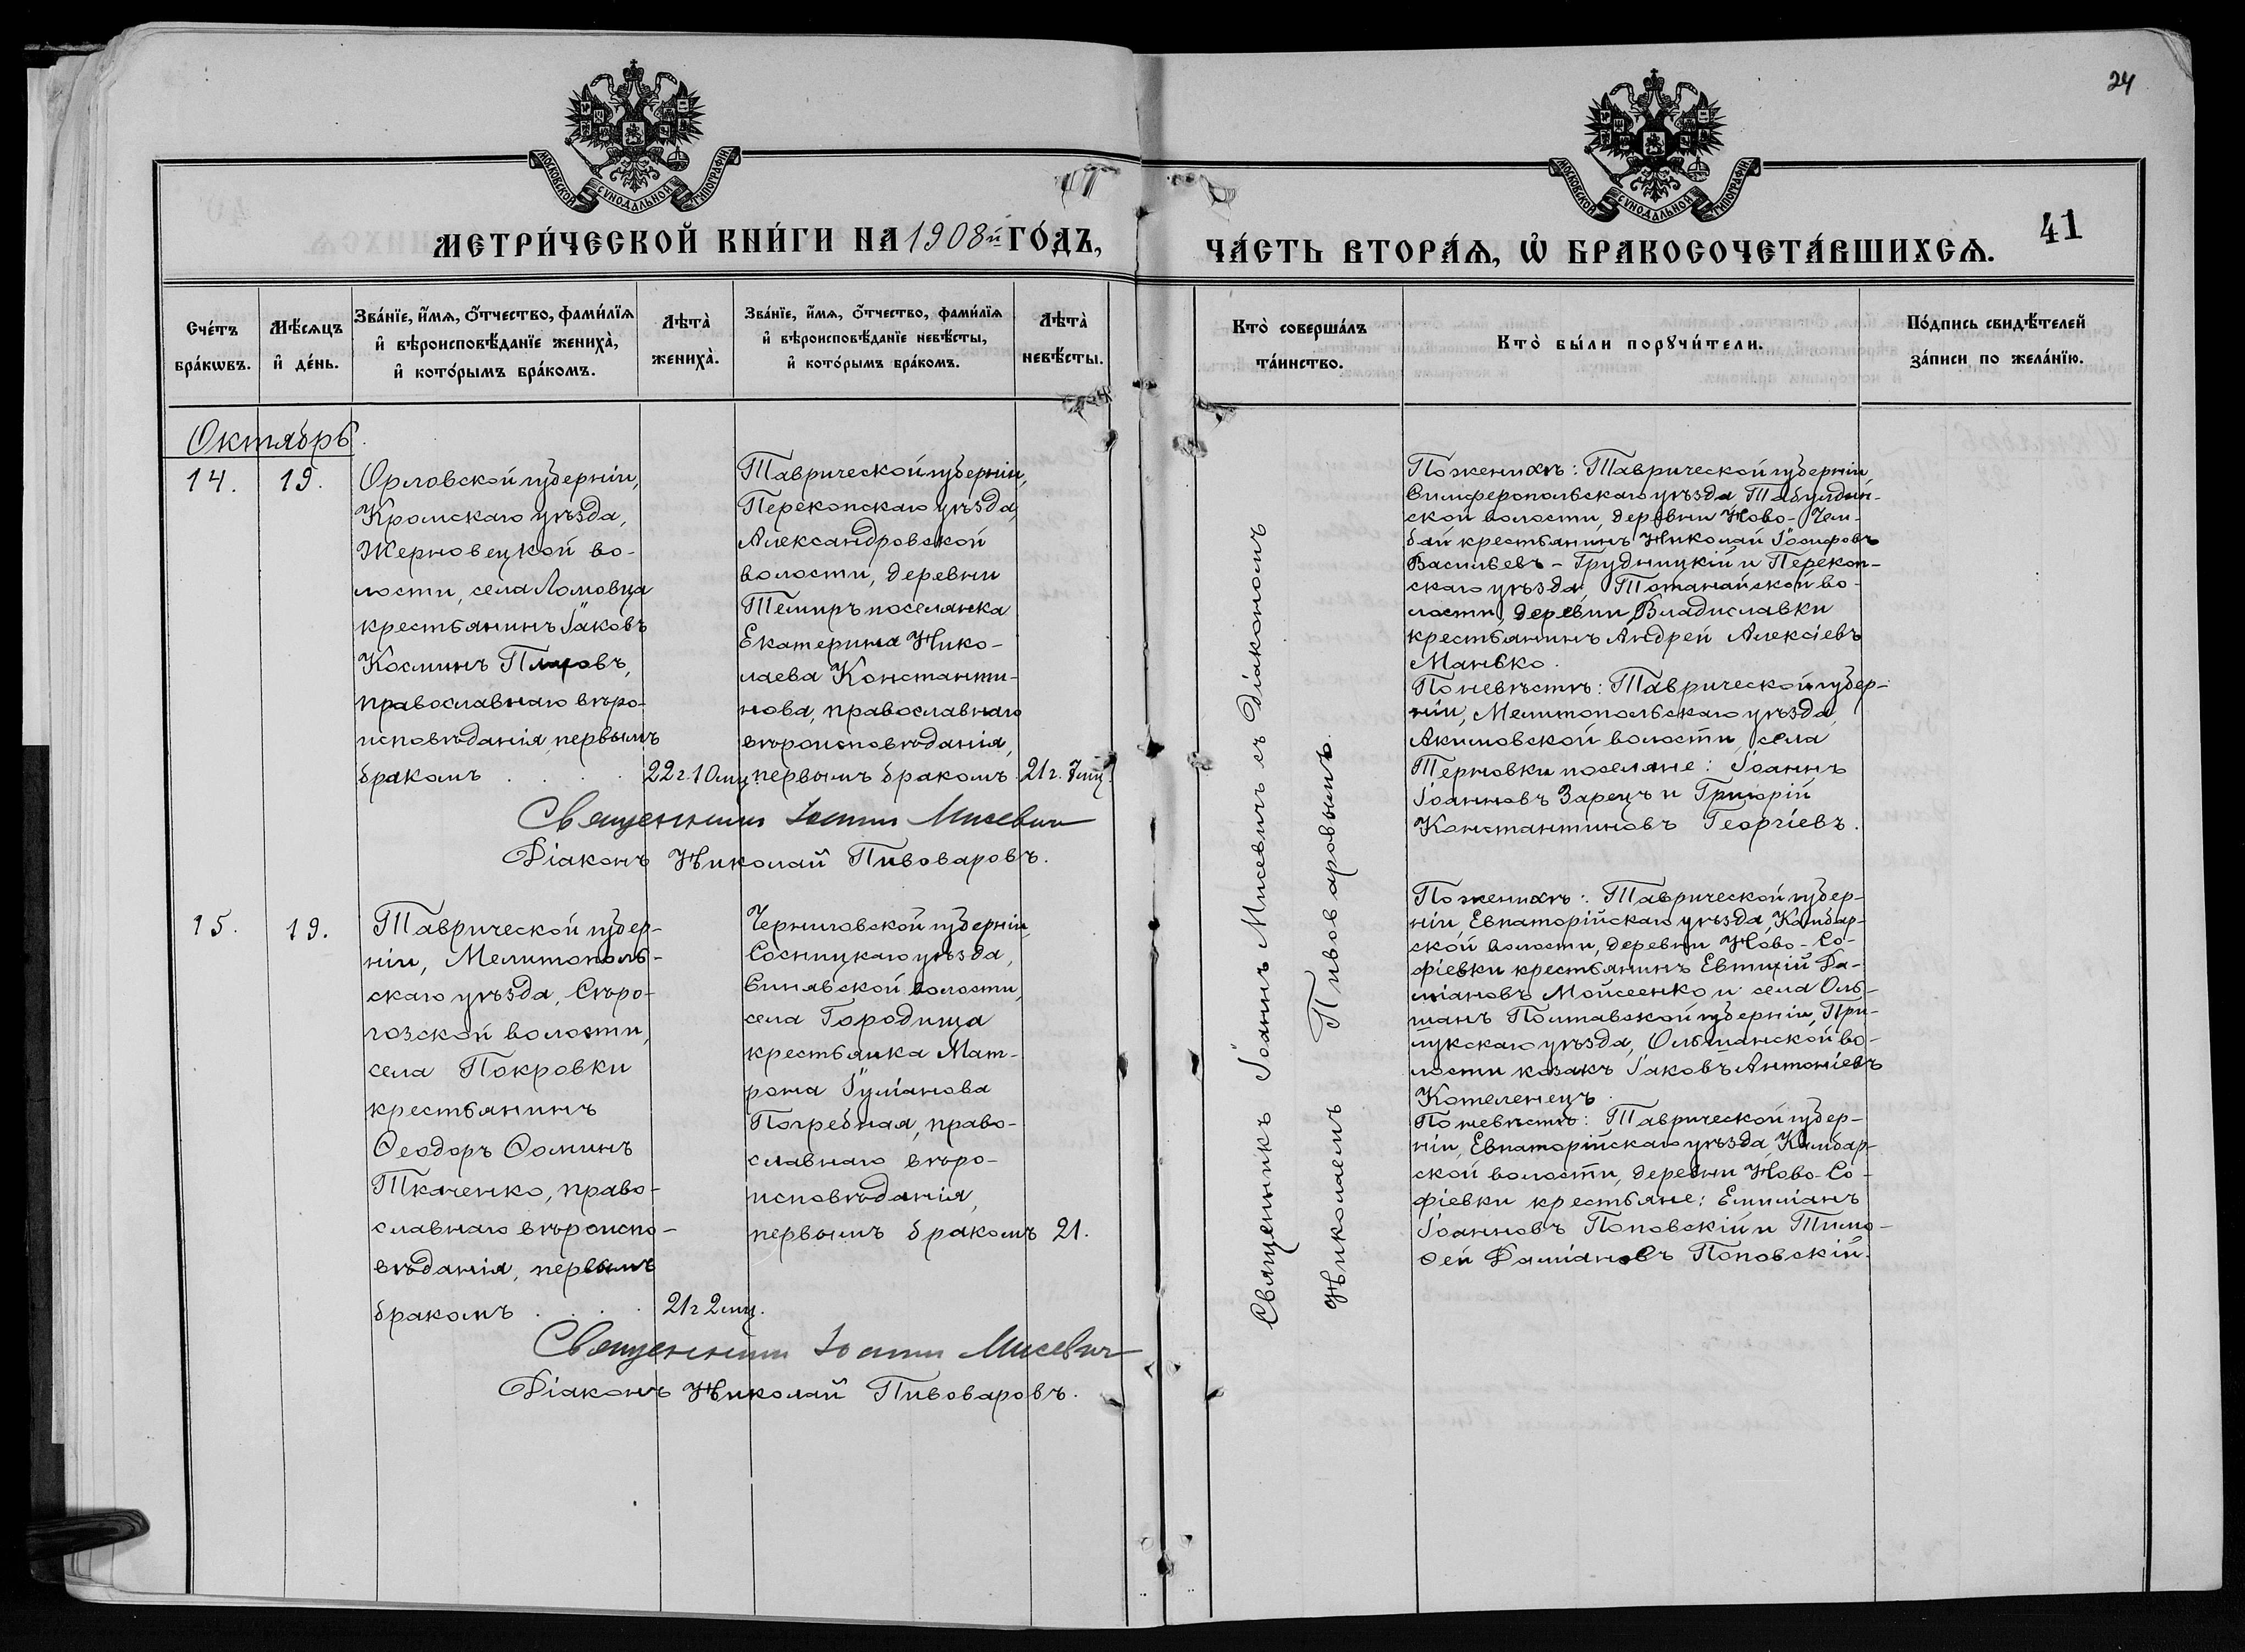 24
МОСКОВСКОЙ СУНОДАЛЬНОЙ ТИПОГРАФІИ
МОСКОВСКОЙ СУНОДАЛЬНОЙ ТИПОГРАФІИ
41
МЕТРИ́ЧЕСКОЙ КНИ́ГИ НА 1908й ГО́ДЪ,
ЧА́СТЬ ВТОРА́Ѧ, Ѡ҆ БРАКОСОЧЕТА́ВШИХСѦ.
Сче́тъ
бра́кѡвъ.
Мѣ́сѧцъ
и҆ де́нь.
Зва́нїе, и҆́мѧ, ѻ҆́тчество, фами́лїѧ
и҆ вѣроисповѣ́данїе жениха̀,
и҆ кото́рымъ бра́комъ.
Лѣта̀
жениха̀.
Зва́нїе, и҆́мѧ, ѻ҆́тчество, фами́лїѧ
и҆ вѣроисповѣ́данїе невѣ́сты,
и҆ кото́рымъ бра́комъ.
Лѣта̀
невѣ́сты.
Кто̀ соверша́лъ
та́инство.
Кто̀ бы́ли порꙋчи́тели.
По́дпись свидѣ́телей
за́писи по жела́нїю.
Октябрь.
14.
19.
Орловской губерніи,
Кромскаго уѣзда,
Жерновецкой во-
лости, села Ломовца
крестьянинъ Іаковъ
Косминъ
православнаго вѣро-
исповѣданія, первымъ
бракомъ . . . .
22 г. 10 мц.
Таврической губерніи,
Перекопскаго уѣзда,
Александровской
волости, деревни
Темиръ поселянка
Екатерина Нико-
лаева Константи-
нова, православнаго
вѣроисповѣданія,
первымъ бракомъ.
21 г. 7 мц.
Священникъ Іоаннъ Мисевичъ
Діаконъ Николай Пивоваровъ.
Священникъ Іоаннъ Мисевичъ съ Діакономъ
Николаемъ Пивоваровымъ.
По женихѣ: Таврической губерніи
Симферопольскаго уѣзда Табулдин-
ской волости, деревни Ново-Чем-
бай крестьянинъ Николай Іосифовъ
Васильевъ-Грудницкій и Перекоп-
скаго уѣзда, Тотанайской во-
лости, деревни Владиславки
крестьянинъ Андрей Алексіевъ
Манько.
По невѣстѣ: Таврической губер-
ніи, Мелитопольскаго уѣзда,
Акимовской волости, села
Терновки поселяне: Іоаннъ
Іоанновъ Зарецъ и Григорій
Константиновъ Георгіевъ.
15.
19.
Таврической губер-
ніи, Мелитополь-
скаго уѣзда, Сѣро-
гозской волости,
села Покровки
крестьянинъ
Ѳеодоръ Ѳоминъ
Ткаченко, право-
славнаго вѣроиспо-
вѣданія, первымъ
бракомъ . . . .
21 г 2 мц.
Черниговской губерніи,
Сосницкаго уѣзда,
Синявской волости,
села Городища
крестьянка Мат-
рона Іуліанова
Погребная, право-
славнаго вѣро-
исповѣданія,
первымъ бракомъ
21.
Священникъ Іоаннъ Мисевичъ
Діаконъ Николай Пивоваровъ.
По женихѣ: Таврической губер-
ніи, Евпаторійскаго уѣзда, Камбар-
ской волости, деревни Ново-Со-
фіевки крестьянинъ Евтихій Да-
міановъ Мойсеенко и села Оль-
шанъ Полтавской губерніи, При-
лукскаго уѣзда, Ольшанской во-
лости козакъ Іаковъ Антоніевъ
Котеленецъ.
По невѣстѣ: Таврической губер-
ніи, Евпаторійскаго уѣзда, Камбар-
ской волости, деревни Ново-Со-
фіевки крестьяне: Емиліанъ
Іоанновъ Поповскій и Тимо-
ѳей Даміановъ Поповскій.